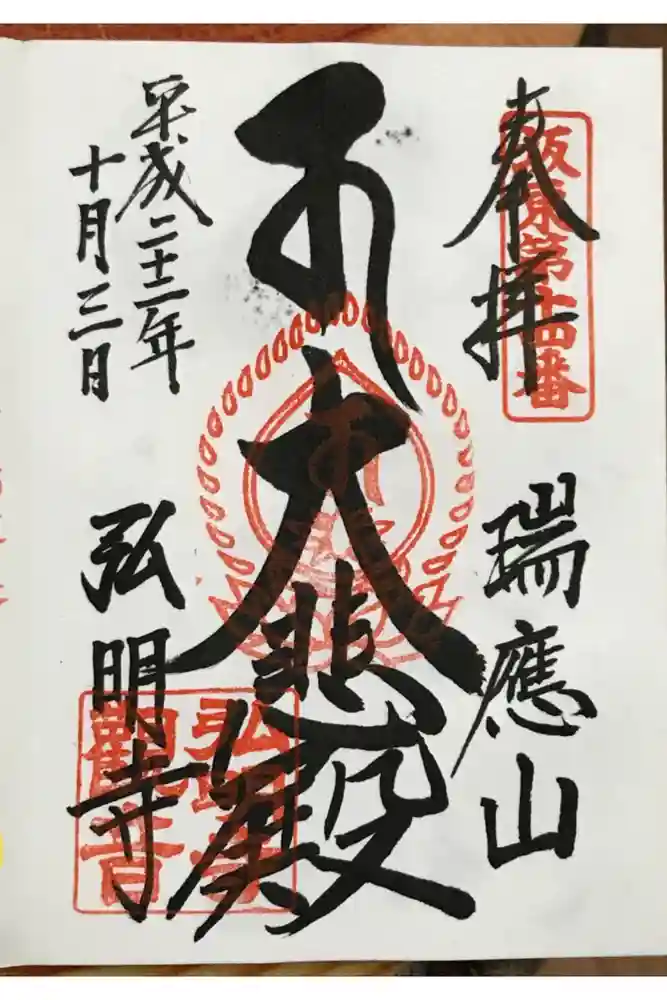 奉拝
坂東第十四番
瑞應山
大悲殿
平成二十二年
十月三日
弘明寺
弘明寺
觀音